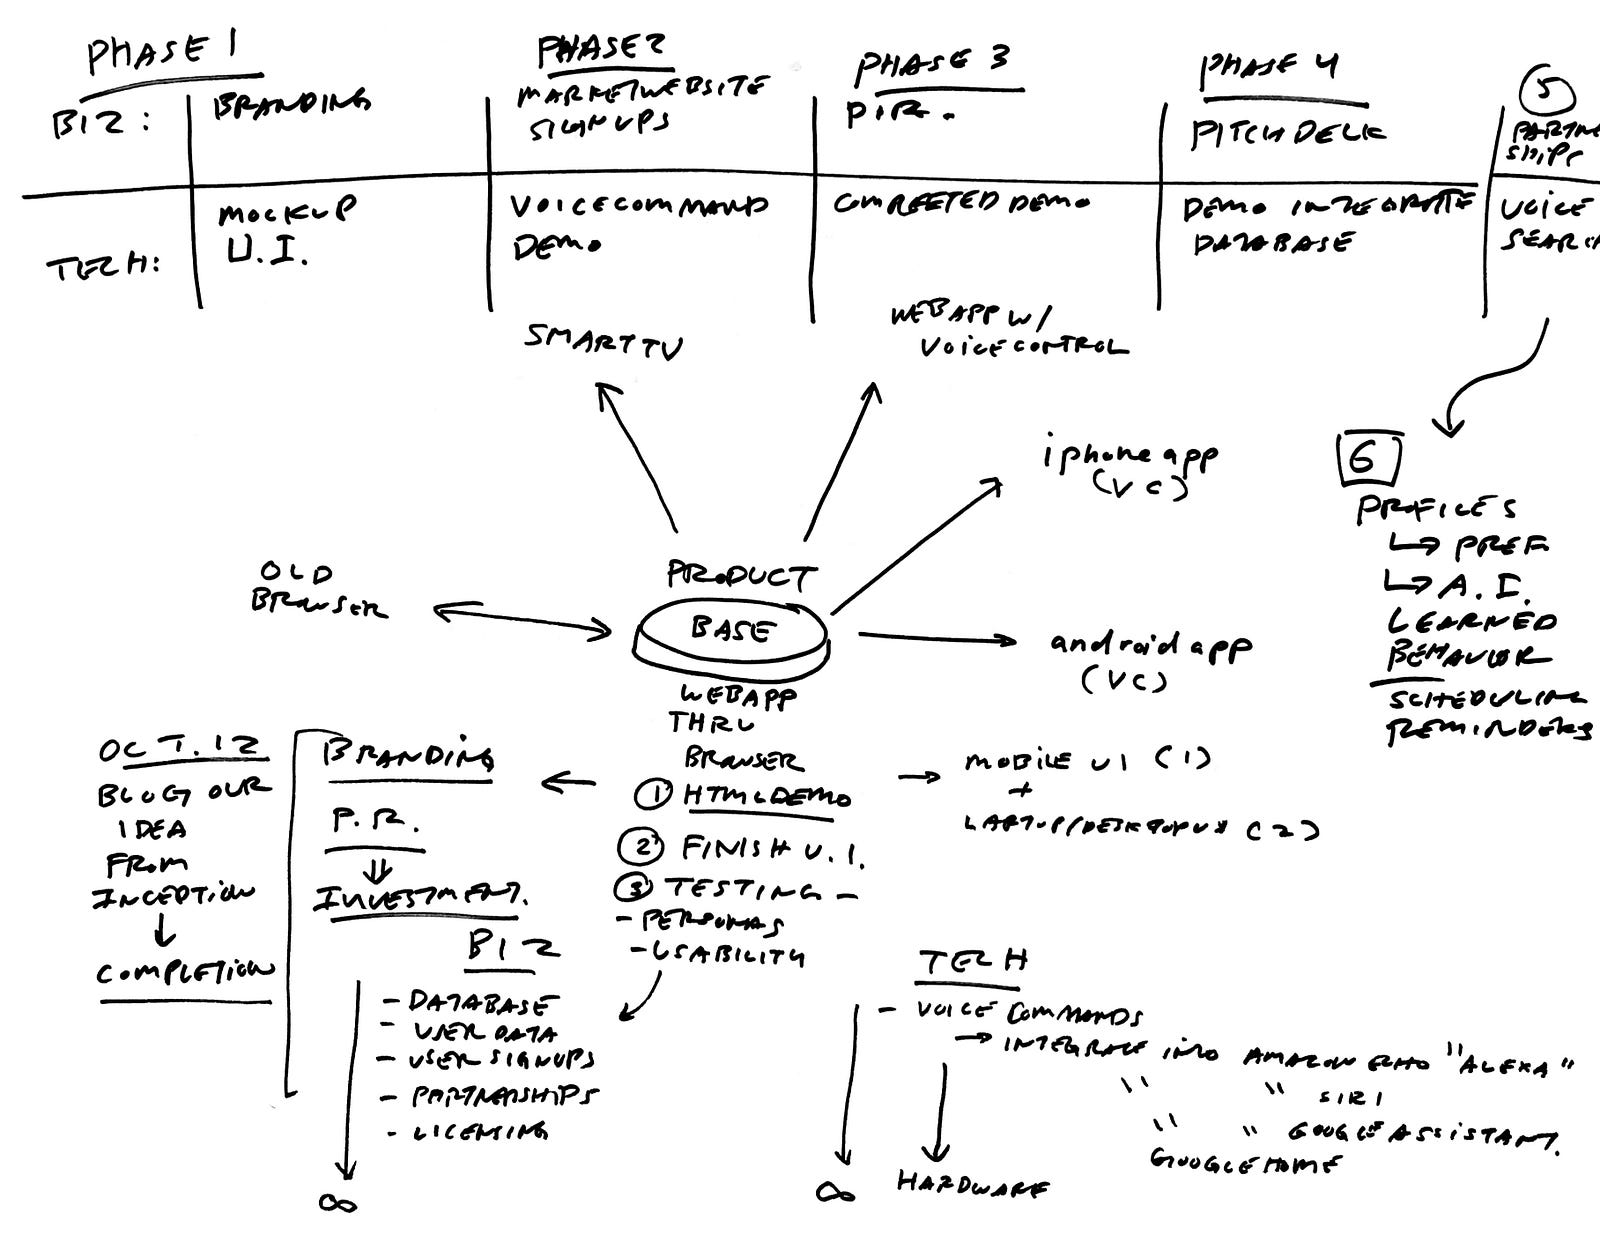 PHASE 1
PHASE 2
PHASE 3
PHASE 4
5
BIZ:
BRANDING
MARKET WEBSITE
SIGNUPS
P.R.
PITCH DECK
PARTNE
SHIPS
TECH:
MOCKUP
U.I.
VOICE COMMAND
DEMO
COMPLETED DEMO
DEMO INTEGRATE
DATABASE
VOICE
SEARCH
SMART TV
WEBAPP W/
VOICE CONTROL
iphone app
(VC)
6
PROFILES
↳ PREF.
↳ A.I.
LEARNED
BEHAVIOR
SCHEDULING
REMINDERS
OLD
BROWSER
PRODUCT
BASE
android app
(VC)
WEBAPP
THRU
BROWSER
① HTML DEMO
② FINISH U.I.
③ TESTING -
- PERSONAS
- USABILITY
MOBILE UI (1)
+
LAPTOP/DESKTOP UX (2)
OCT. 12
BLOG OUR
IDEA
FROM
INCEPTION
↓
COMPLETION
BRANDING
P.R.
⇓
INVESTMENT.
BIZ
- DATABASE
- USER DATA
- USER SIGNUPS
- PARTNERSHIPS
- LICENSING
∞
TECH
- VOICE COMMANDS
→ INTEGRATE INTO AMAZON ECHO "ALEXA"
" " SIRI
" " GOOGLE ASSISTANT.
GOOGLE HOME
∞
HARDWARE